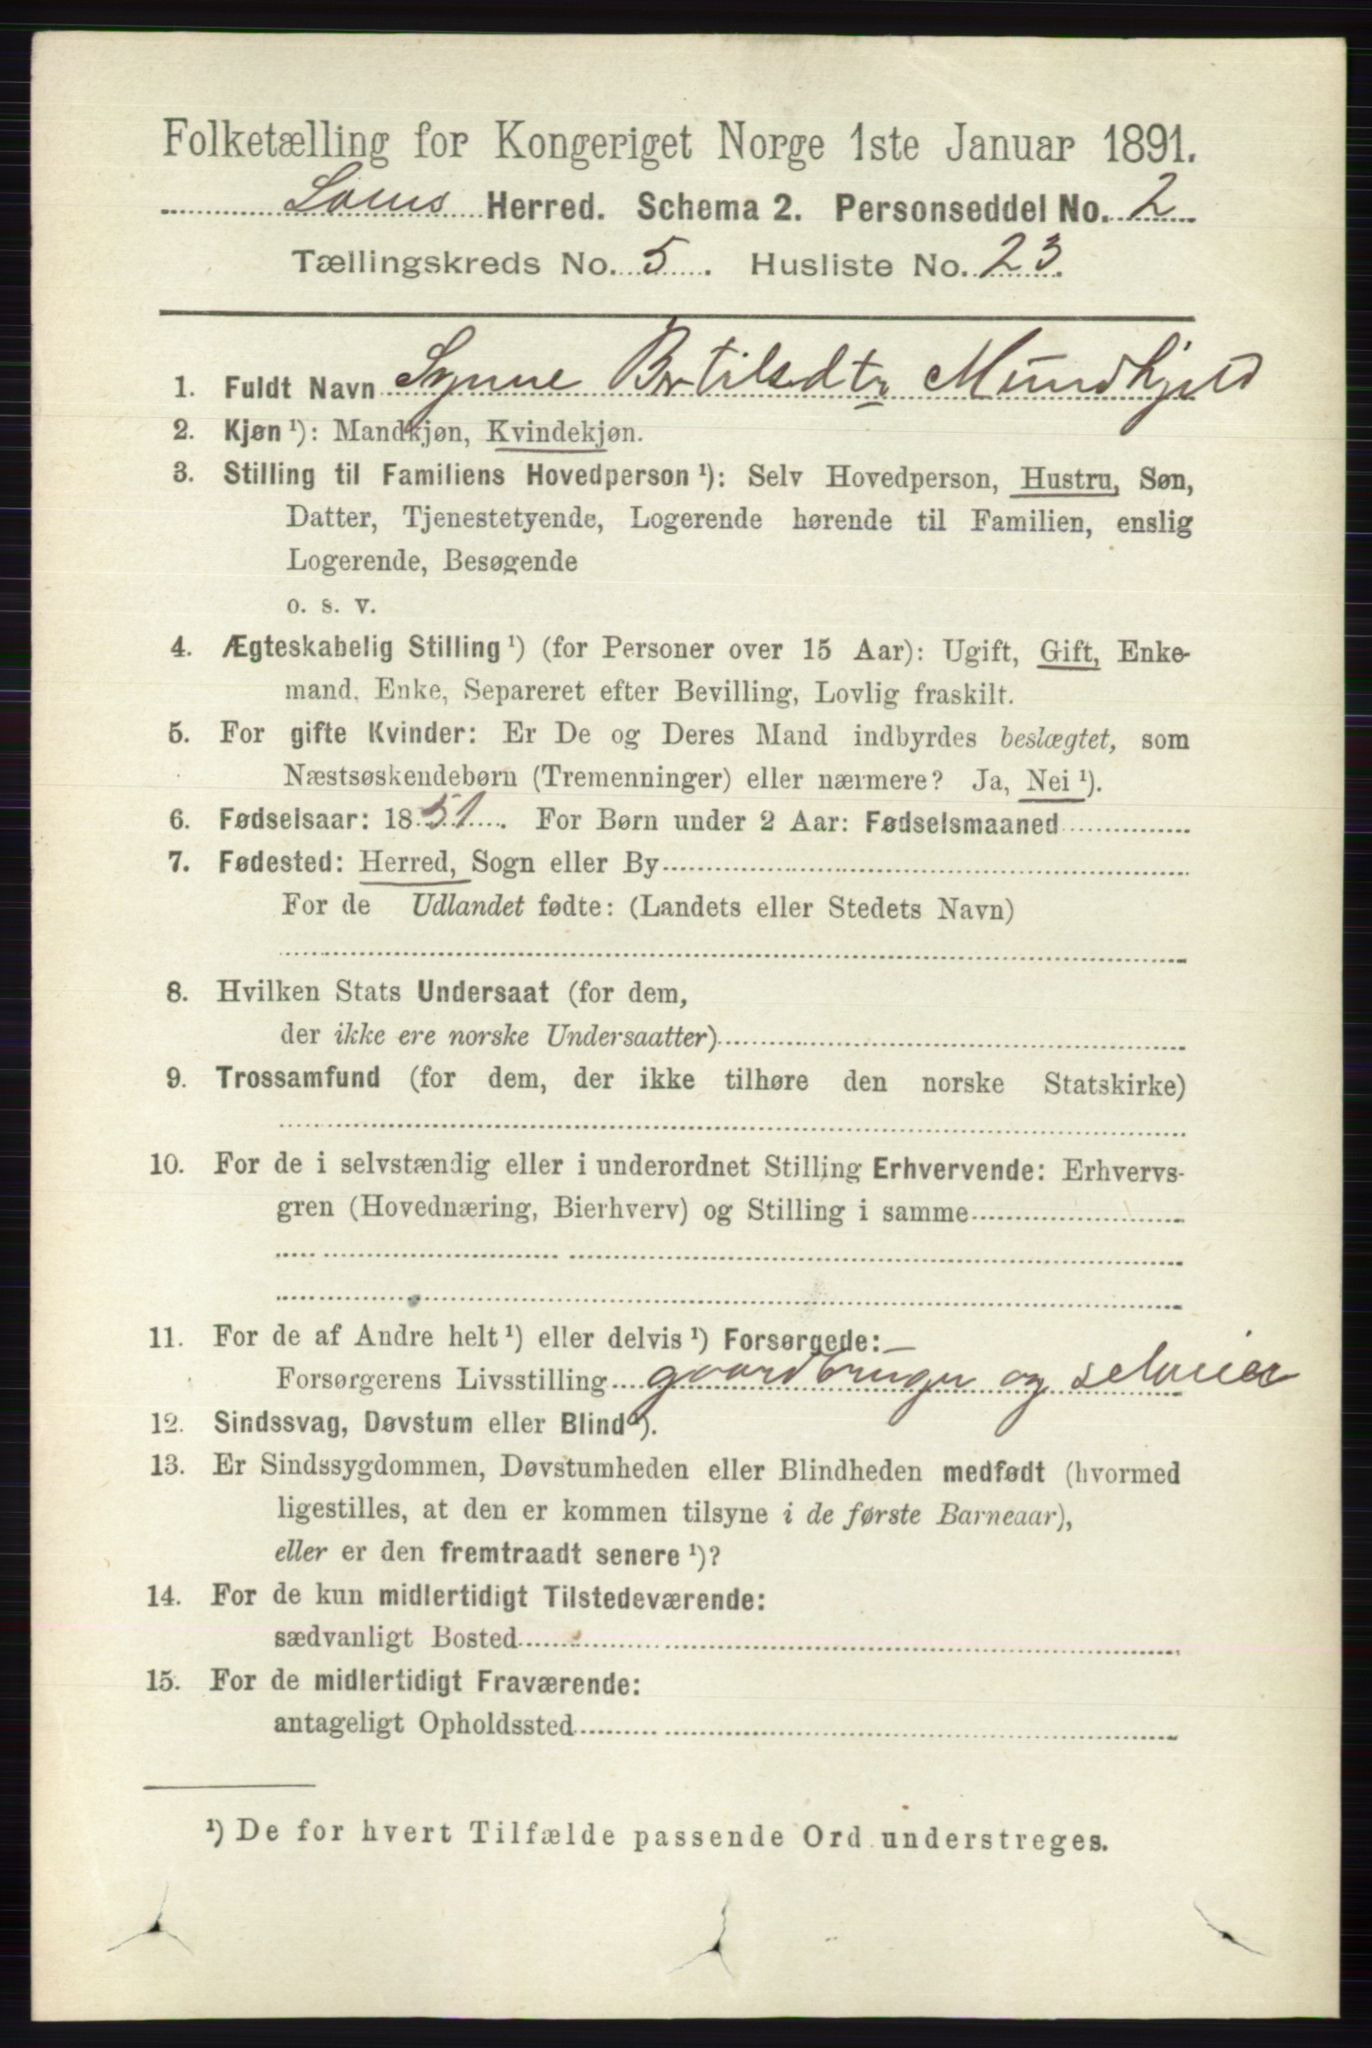 Folketælling for Kongeriget Norge 1ste Januar 1891.
Loms Herred. Schema 2. Personseddel No. 2
Tællingskreds No. 5. Husliste No. 23.
1. Fuldt Navn Synne Bertilsdtr Mundhjeld
2. Kjøn ¹): Mandkjøn, Kvindekjøn.
3. Stilling til Familiens Hovedperson ¹): Selv Hovedperson, Hustru, Søn,
Datter, Tjenestetyende, Logerende hørende til Familien, enslig
Logerende, Besøgende
o. s. v.
4. Ægteskabelig Stilling ¹) (for Personer over 15 Aar): Ugift, Gift, Enke-
mand, Enke, Separeret efter Bevilling, Lovlig fraskilt.
5. For gifte Kvinder: Er De og Deres Mand indbyrdes beslægtet, som
Næstsøskendebørn (Tremenninger) eller nærmere? Ja, Nei ¹).
6. Fødselsaar: 1851. For Børn under 2 Aar: Fødselsmaaned
7. Fødested: Herred, Sogn eller By
For de Udlandet fødte: (Landets eller Stedets Navn)
8. Hvilken Stats Undersaat (for dem,
der ikke ere norske Undersaatter)
9. Trossamfund (for dem, der ikke tilhøre den norske Statskirke)
10. For de i selvstændig eller i underordnet Stilling Erhvervende: Erhvervs-
gren (Hovednæring, Bierhverv) og Stilling i samme
11. For de af Andre helt ¹) eller delvis ¹) Forsørgede:
Forsørgerens Livsstilling gaardbruger og selveier
12. Sindssvag, Døvstum eller Blind ¹).
13. Er Sindssygdommen, Døvstumheden eller Blindheden medfødt (hvormed
ligestilles, at den er kommen tilsyne i de første Barneaar),
eller er den fremtraadt senere ¹)?
14. For de kun midlertidigt Tilstedeværende:
sædvanligt Bosted
15. For de midlertidigt Fraværende:
antageligt Opholdssted
¹) De for hvert Tilfælde passende Ord understreges.